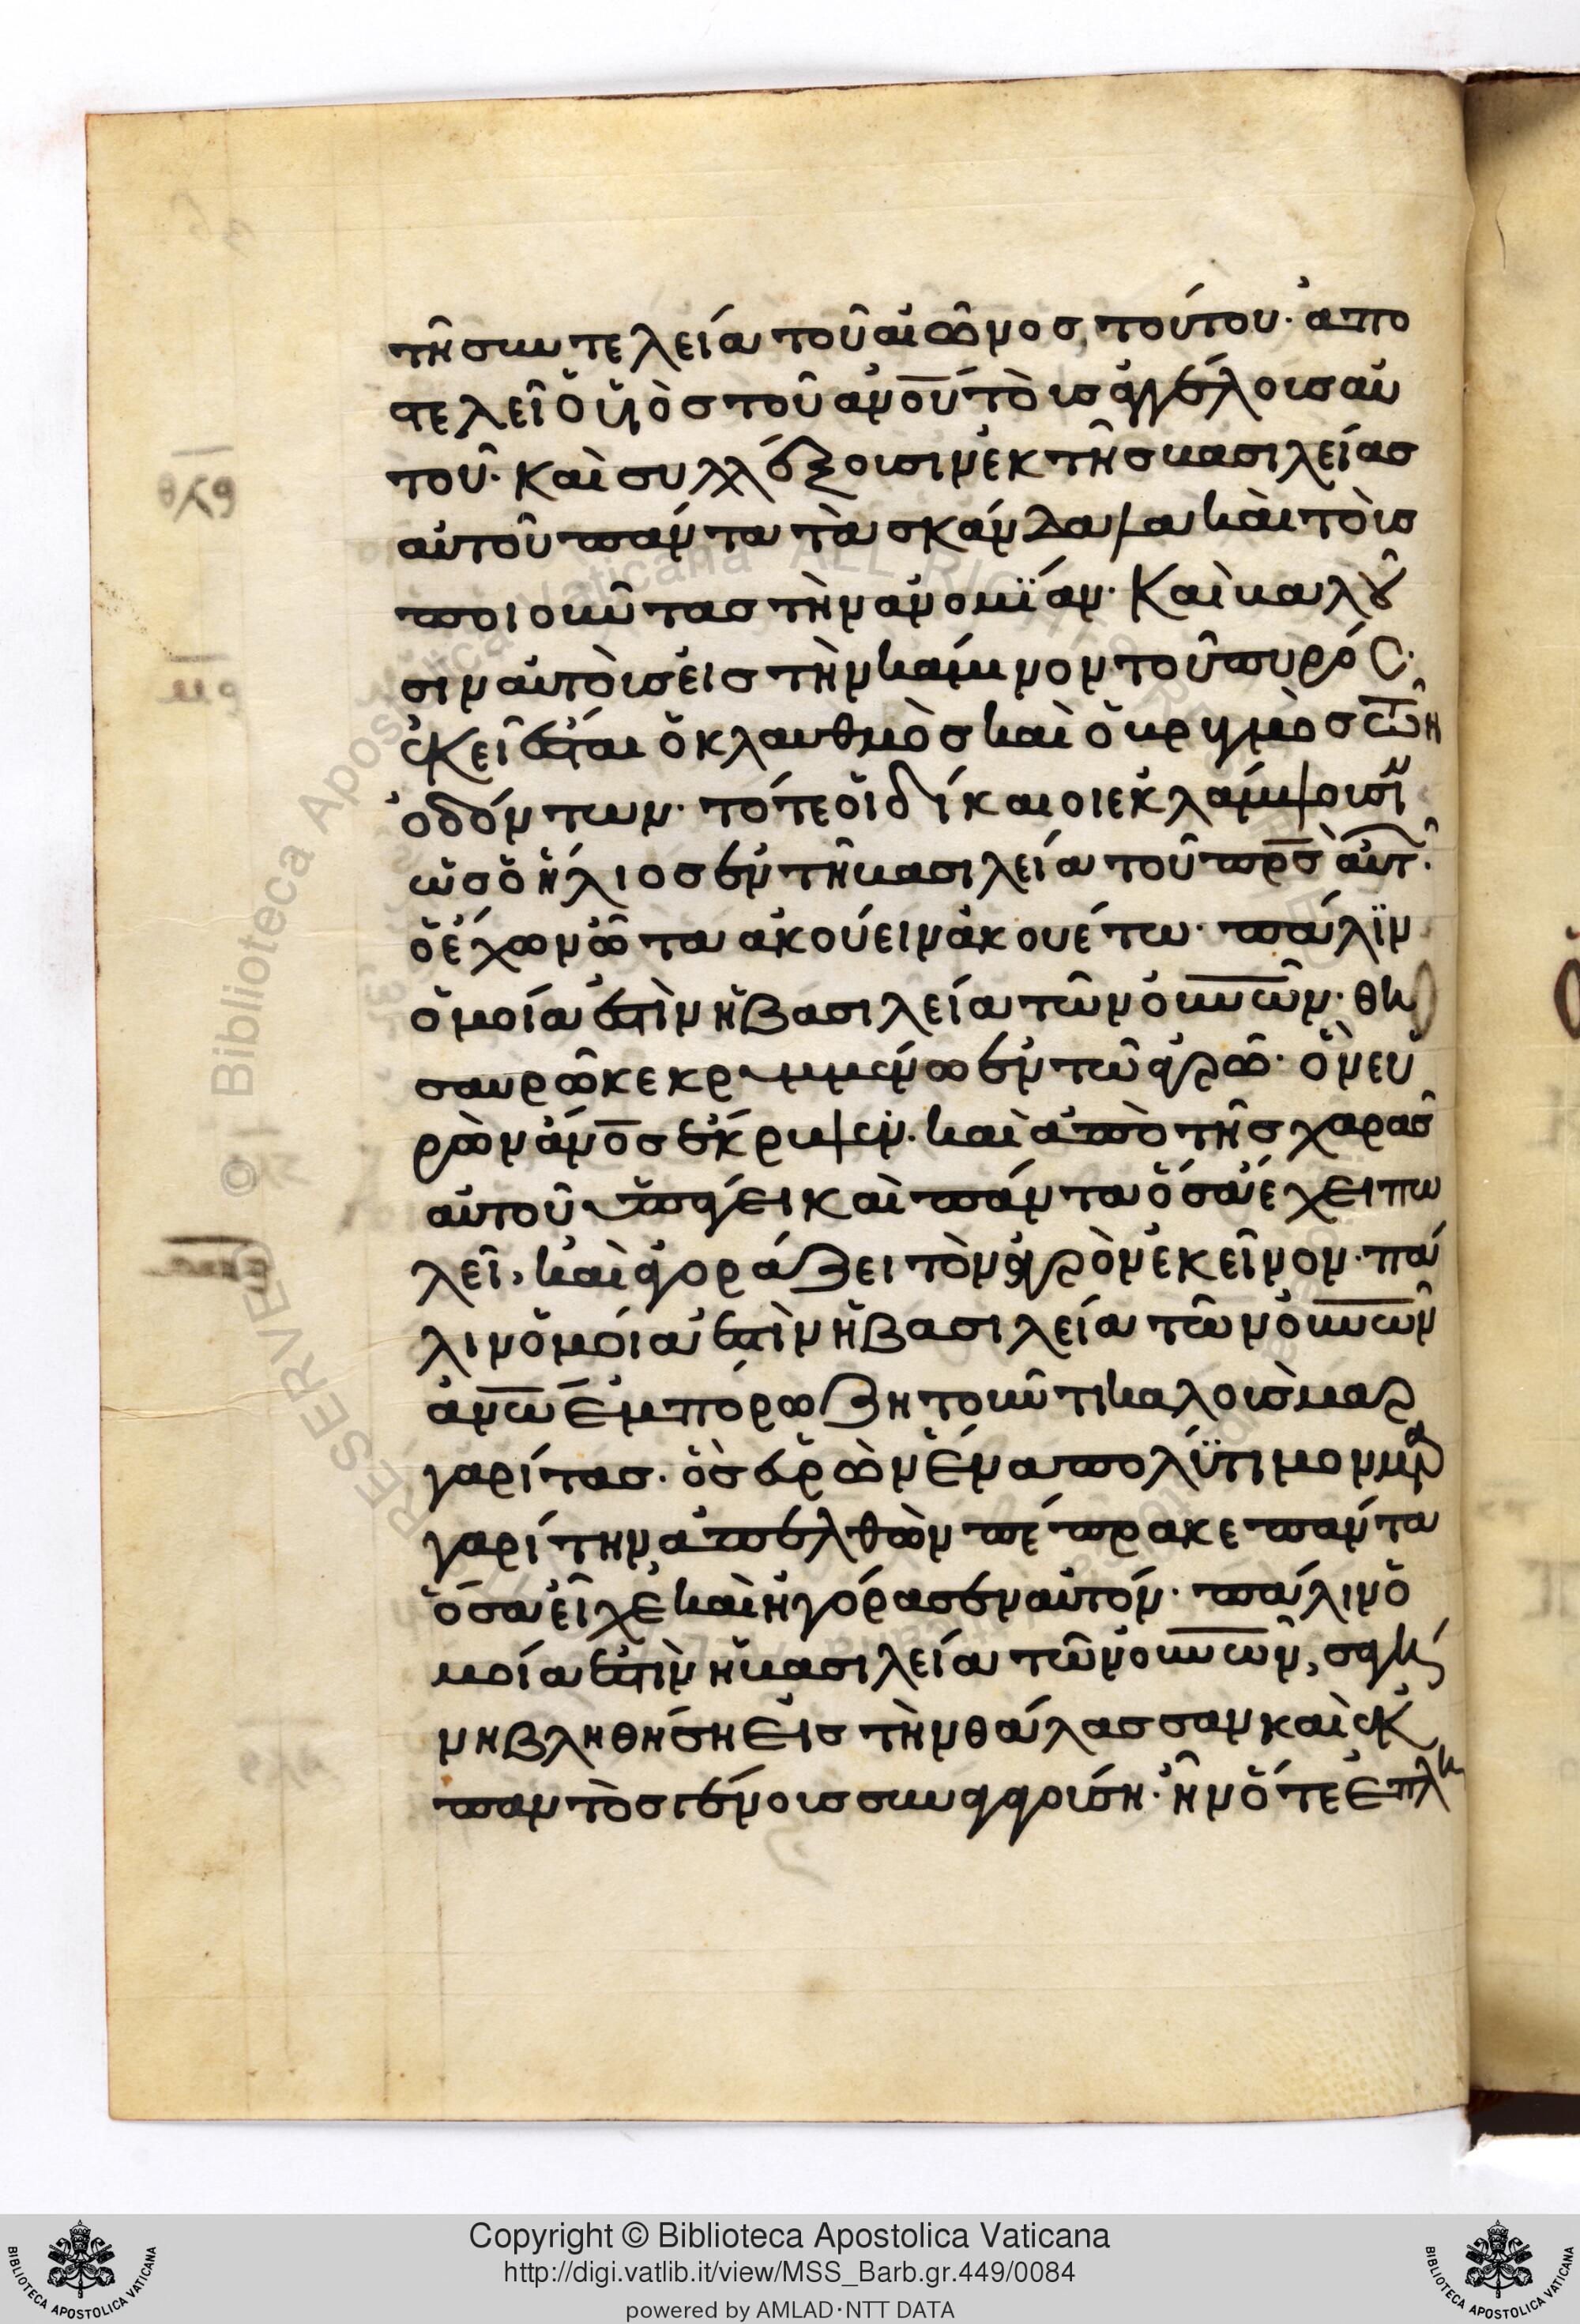 τῆ συντελεία τοῦ αἰῶνος τούτου· ἀπο
στελεῖ ὁ υἱὸς τοῦ ἀνου τοὺς ἀγγέλους αὐ
τοῦ· καὶ συλλέξουσιν ἐκ τῆς βασιλείας
αὐτοῦ πάντα τὰ σκάνδαλα καὶ τοὺς
ποιοῦντας τὴν ἀνομΐαν· Καὶ βαλοῦ
σιν αὐτοὺς εἰς τὴν κάμινον τοῦ πυρός·
ἐκεῖ ἔσται ὁ κλαυθμὸς καὶ ὁ βρυγμὸς τῶν
ὀδόντων· τότε οἱ δίκαιοι ἐκλάμψουσιν
ὡς ὁ ἥλιος ἐν τῆ βασιλεία τοῦ πρς αὐτῶν·
ὁ ἔχων ὦτα ἀκούειν ἀκουέτω· πάλϊν
ὁμοία ἐστὶν ἡ βασιλεία τῶν οὐνῶν· θη
σαυρῶ κεκρυμμένω ἐν τῶ ἀγρῶ· ὃν εὑ
ρὼν ἀνος ἔκρυψεν· καὶ ἀπὸ τῆς χαρᾶς
αὐτοῦ ὑπάγει καὶ πάντα ὅσα ἔχει πω
λεῖ, καὶ ἀγοράζει τὸν ἀγρὸν ἐκεῖνον· πά
λιν ὁμοία ἐστὶν ἡ βασιλεία τῶν οὐνῶν
ἀνω ἐμπόρω ζητοῦντι καλοὺς μαρ
γαρίτας· ὃς εὑρὼν ἕνα πολύτιμον μαρ
γαρίτην ἀπελθὼν πέπρακε πάντα
ὅσα εἶχε καὶ ἠγόρασεν αὐτόν· πάλιν ὁ
μοία ἐστὶν ἡ βασιλεία τῶν οὐνῶν, σαγή
νη βληθήση εἰς τὴν θάλασσαν καὶ ἐκ
παντὸς γένους συναγαγούση· ἣν ὅτε ἐπλη
Copyright © Biblioteca Apostolica Vaticana
http://digi.vatlib.it/view/MSS_Barb.gr.449/0084
powered by AMLAD·NTT DATA